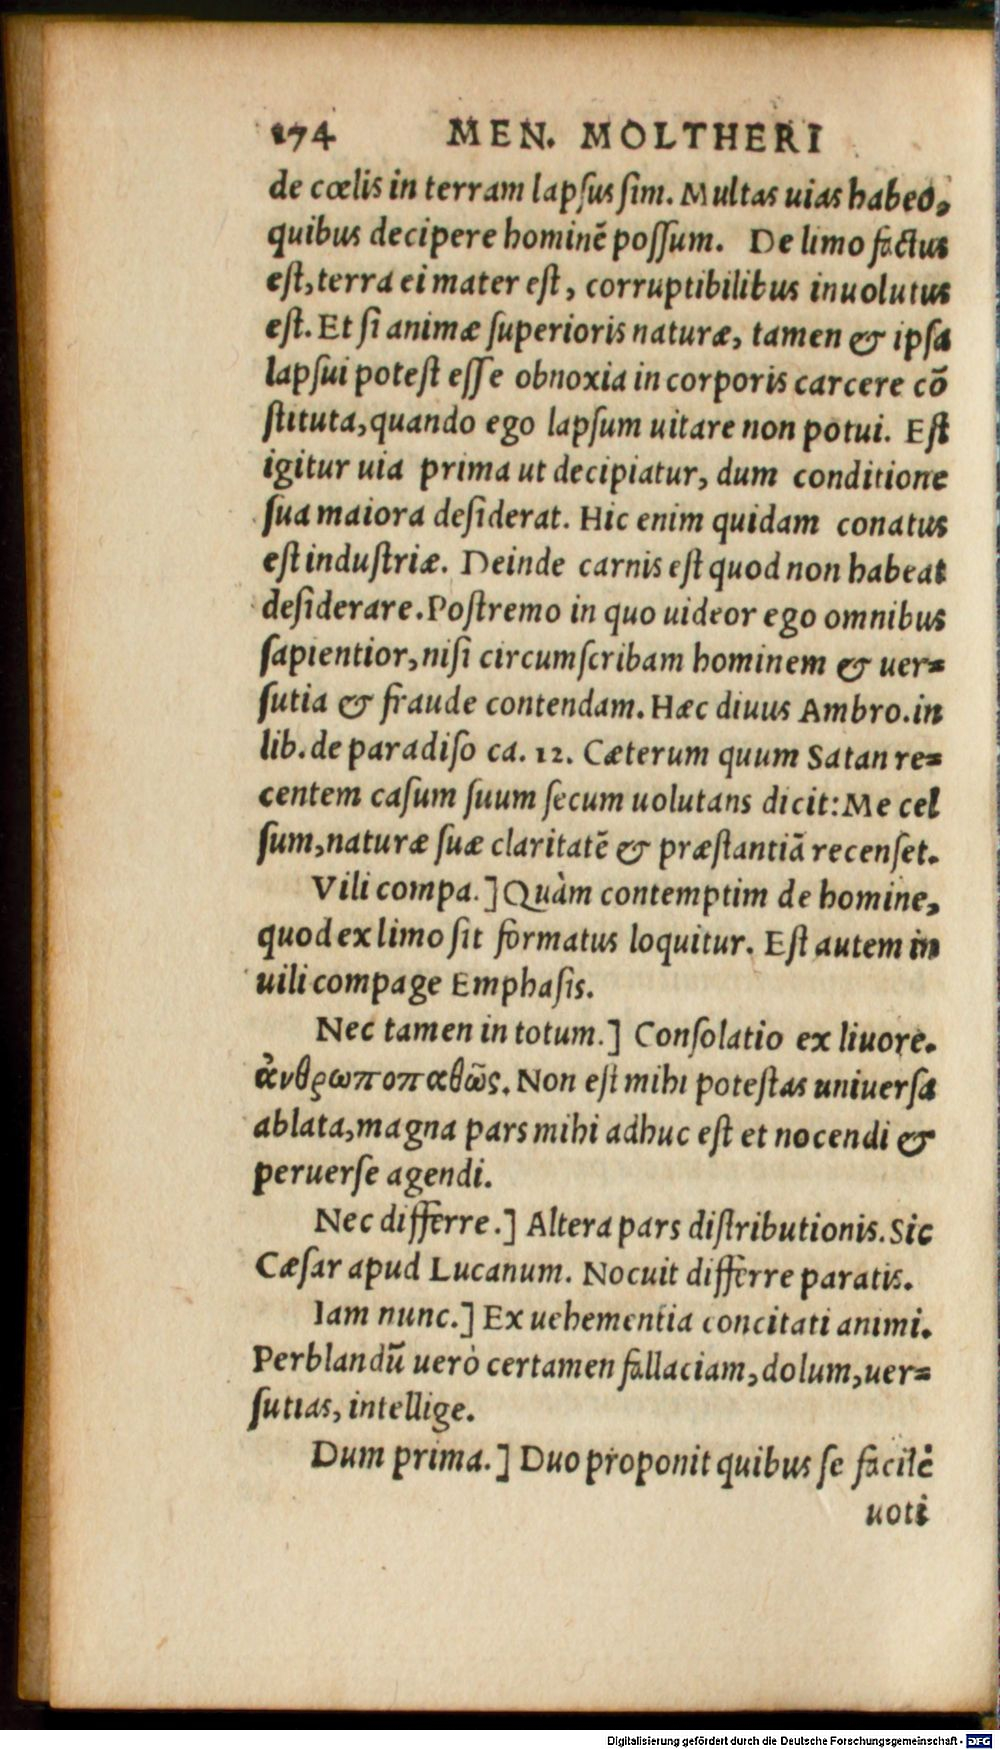 174 MEN. MOLTHERI
de cœlis in terram lapſus ſim. Multas uias habeo,
quibus decipere hominē poſſum. De limo factus
eſt, terra ei mater eſt, corruptibilibus inuolutus
eſt. Et ſi animæ ſuperioris naturæ, tamen & ipſa
lapſui poteſt eſſe obnoxia in corporis carcere cō
ſtituta, quando ego lapſum uitare non potui. Eſt
igitur uia prima ut decipiatur, dum conditione
ſua maiora deſiderat. Hic enim quidam conatus
eſt induſtriæ. Deinde carnis eſt quod non habeat
deſiderare. Poſtremo in quo uideor ego omnibus
ſapientior, niſi circumſcribam hominem & uer=
ſutia & fraude contendam. Hæc diuus Ambro. in
lib. de paradiſo ca. 12. Cæterum quum Satan re=
centem caſum ſuum ſecum uolutans dicit: Me cel
ſum, naturæ ſuæ claritatē & præſtantiā recenſet.
Vili compa.] Quàm contemptim de homine,
quod ex limo ſit formatus loquitur. Eſt autem in
uili compage Emphaſis.
Nec tamen in totum.] Conſolatio ex liuore.
ἀνθρωποπαθῶς. Non eſt mihi poteſtas uniuerſa
ablata, magna pars mihi adhuc eſt et nocendi &
peruerſe agendi.
Nec differre.] Altera pars diſtributionis. Sic
Cæſar apud Lucanum. Nocuit differre paratis.
Iam nunc.] Ex uehementia concitati animi.
Perblandū uerò certamen fallaciam, dolum, uer=
ſutias, intellige.
Dum prima.] Duo proponit quibus ſe facilè
uoti
Digitalisierung gefördert durch die Deutsche Forschungsgemeinschaft - DFG